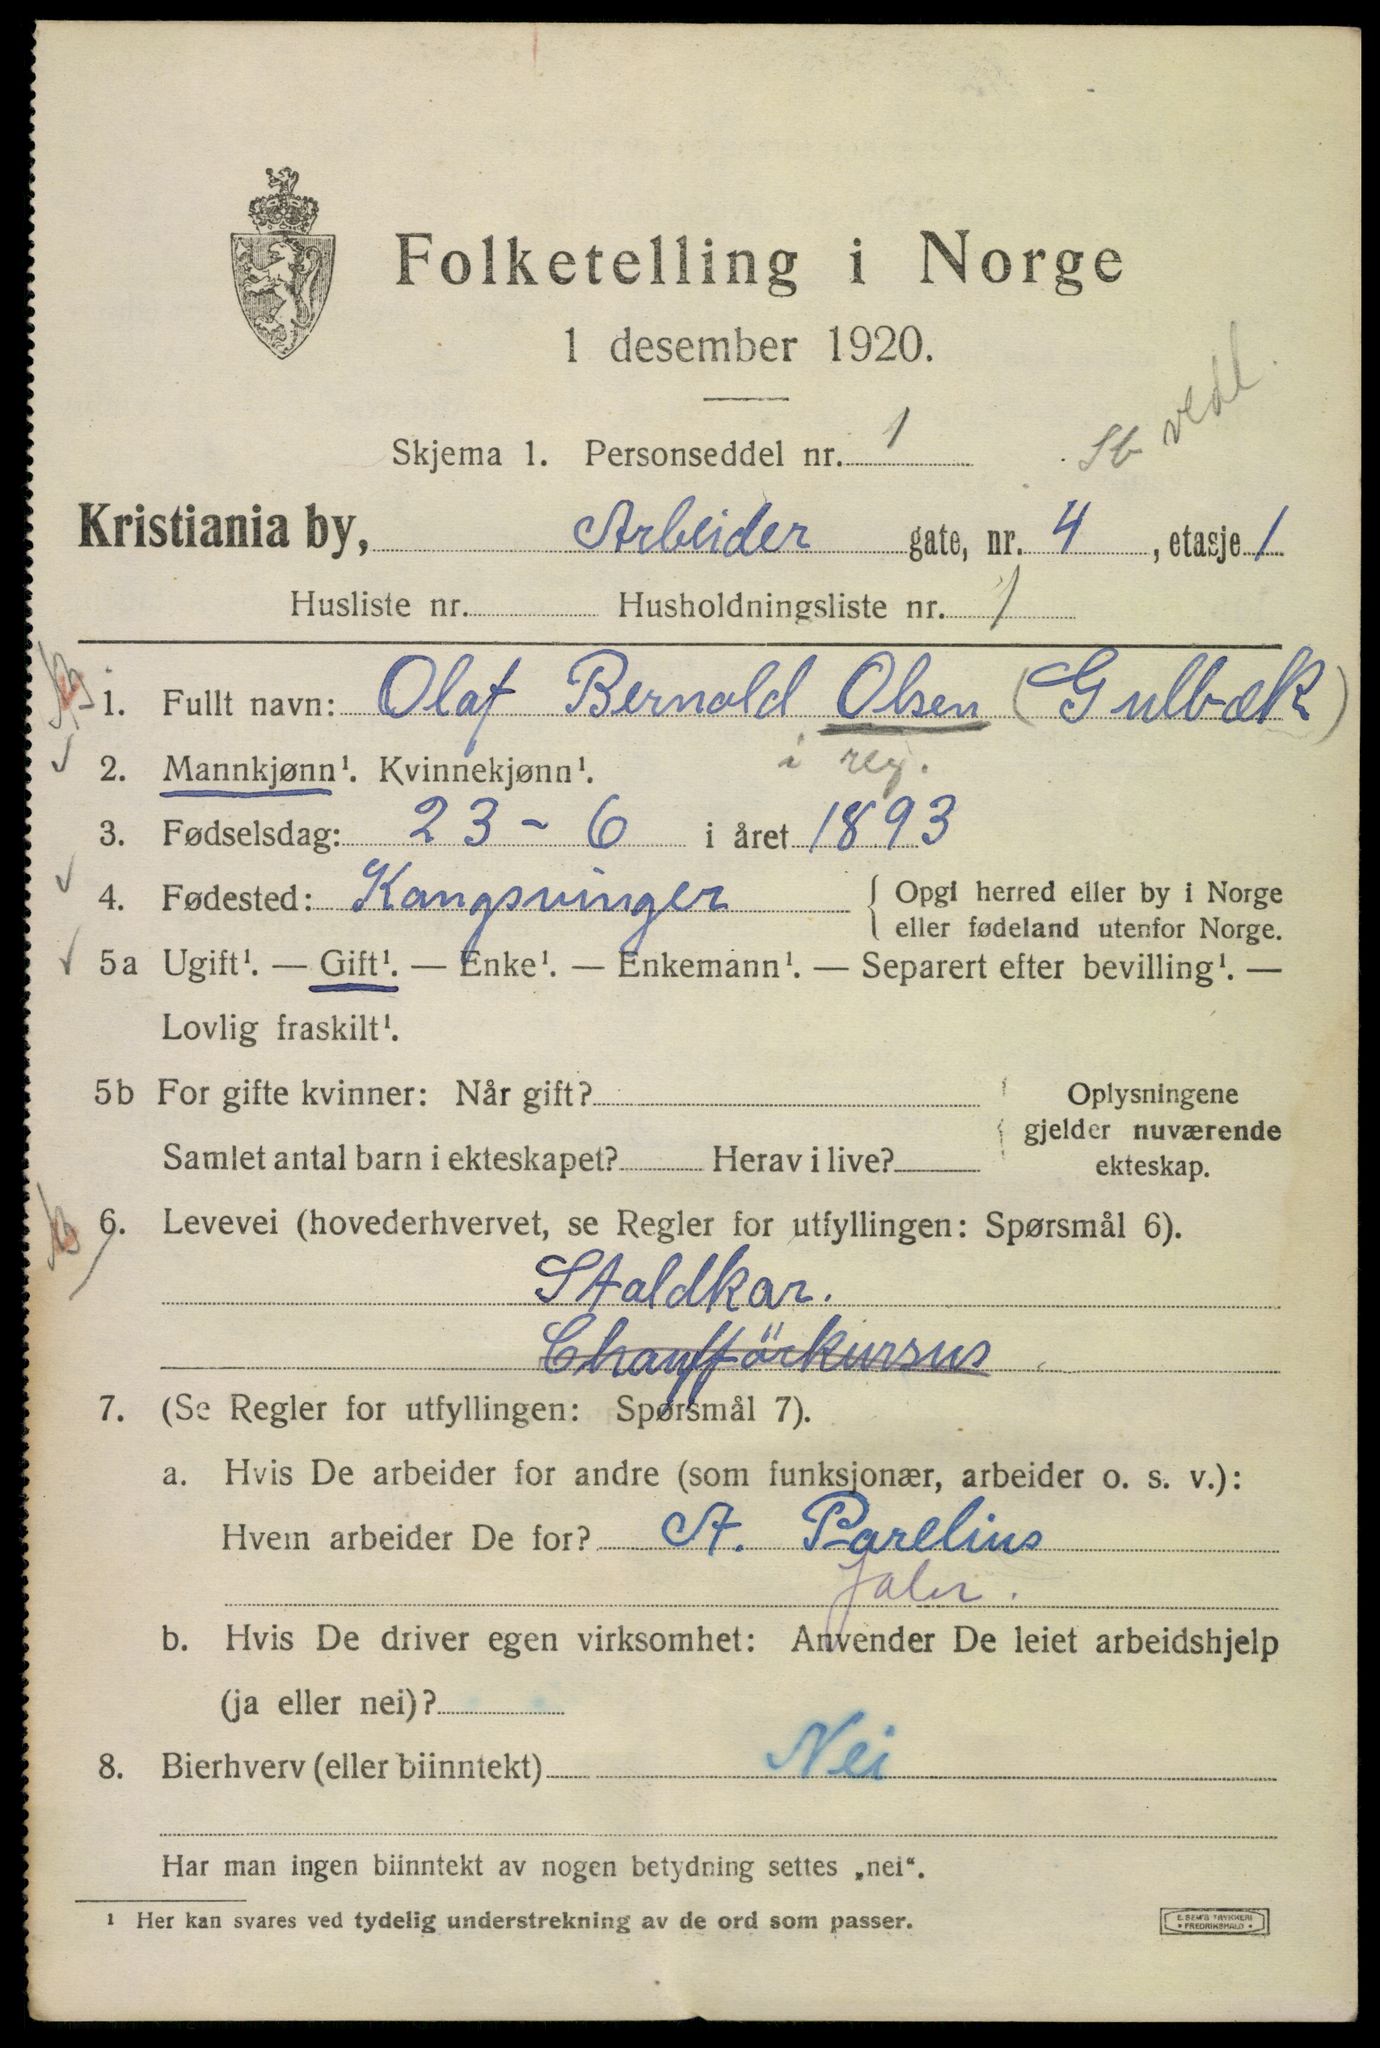 Folketelling i Norge
1 desember 1920.
Skjema 1. Personseddel nr. 1
Sb vedl.
Kristiania by, Arbeider gate, nr. 4, etasje 1
Husliste nr. Husholdningsliste nr. 1
1. Fullt navn: Olaf Bernold Olsen (Gulbæk)
i reg.
2. Mannkjønn¹. Kvinnekjønn¹.
3. Fødselsdag: 23 - 6 i året 1893
4. Fødested: Kangsvinger { Opgi herred eller by i Norge
eller fødeland utenfor Norge.
5a Ugift¹. — Gift¹. — Enke¹. — Enkemann¹. — Separert efter bevilling¹. —
Lovlig fraskilt¹.
5b For gifte kvinner: Når gift?
Samlet antal barn i ekteskapet? Herav i live?
Oplysningene
gjelder nuværende
ekteskap.
6. Levevei (hovederhvervet, se Regler for utfyllingen: Spørsmål 6).
Staldkar.
Chaufförkursus
7. (Se Regler for utfyllingen: Spørsmål 7).
a. Hvis De arbeider for andre (som funksjonær, arbeider o. s. v.):
Hvem arbeider De for? A. Parelius
b. Hvis De driver egen virksomhet: Anvender De leiet arbeidshjelp
(ja eller nei)?
8. Bierhverv (eller biinntekt) Nei
Har man ingen biinntekt av nogen betydning settes „nei“.
¹ Her kan svares ved tydelig understrekning av de ord som passer.
E. SEM'S TRYKKERI
FREDRIKSHALD